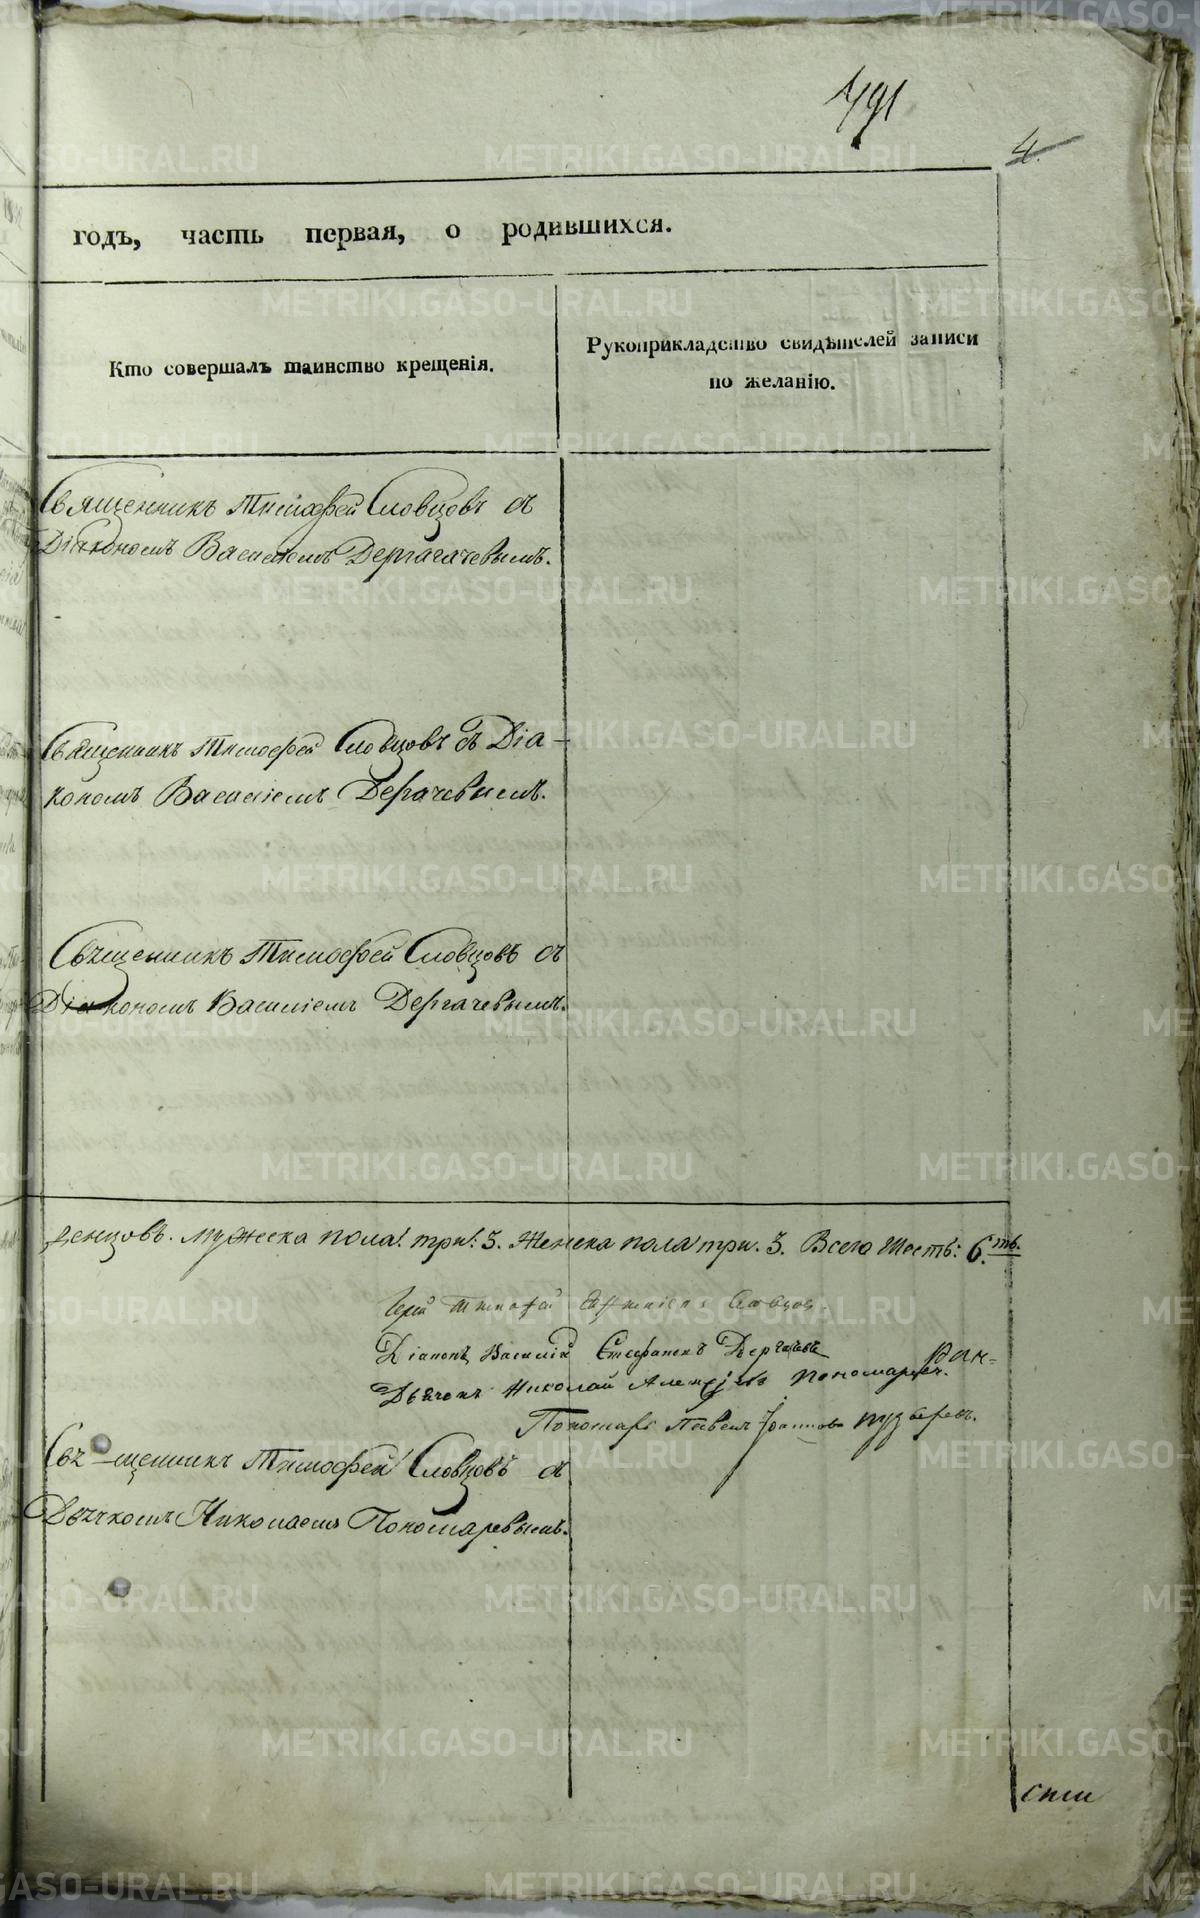 791
4.
годъ, часть первая, о родившихся.
Кто совершалъ таинство крещенія.
Рукоприкладство свидѣтелей записи
по желанію.
Священникъ Тимофей Словцовъ съ
Діакономъ Василіемъ Дергачевымъ.
Священникъ Тимофей Словцовъ съ Діа-
кономъ Василіемъ Дергачевымъ.
Священникъ Тимофей Словцовъ съ
Діакономъ Василіемъ Дергачевымъ.
денцовъ. мужеска пола: три: 3. Женска пола три. 3. Всего шесть: 6.ть.
Іерей Тимофей Словцовъ.
Діаконъ Василій Стефановъ Дергачевъ
Дьячокъ Николай Пономаревъ.
Пономарь Павелъ Іоанновъ Пузыревъ.
Священникъ Тимофей Словцовъ съ
Дьячкомъ Николаемъ Пономаревымъ.
METRIKI.GASO-URAL.RU